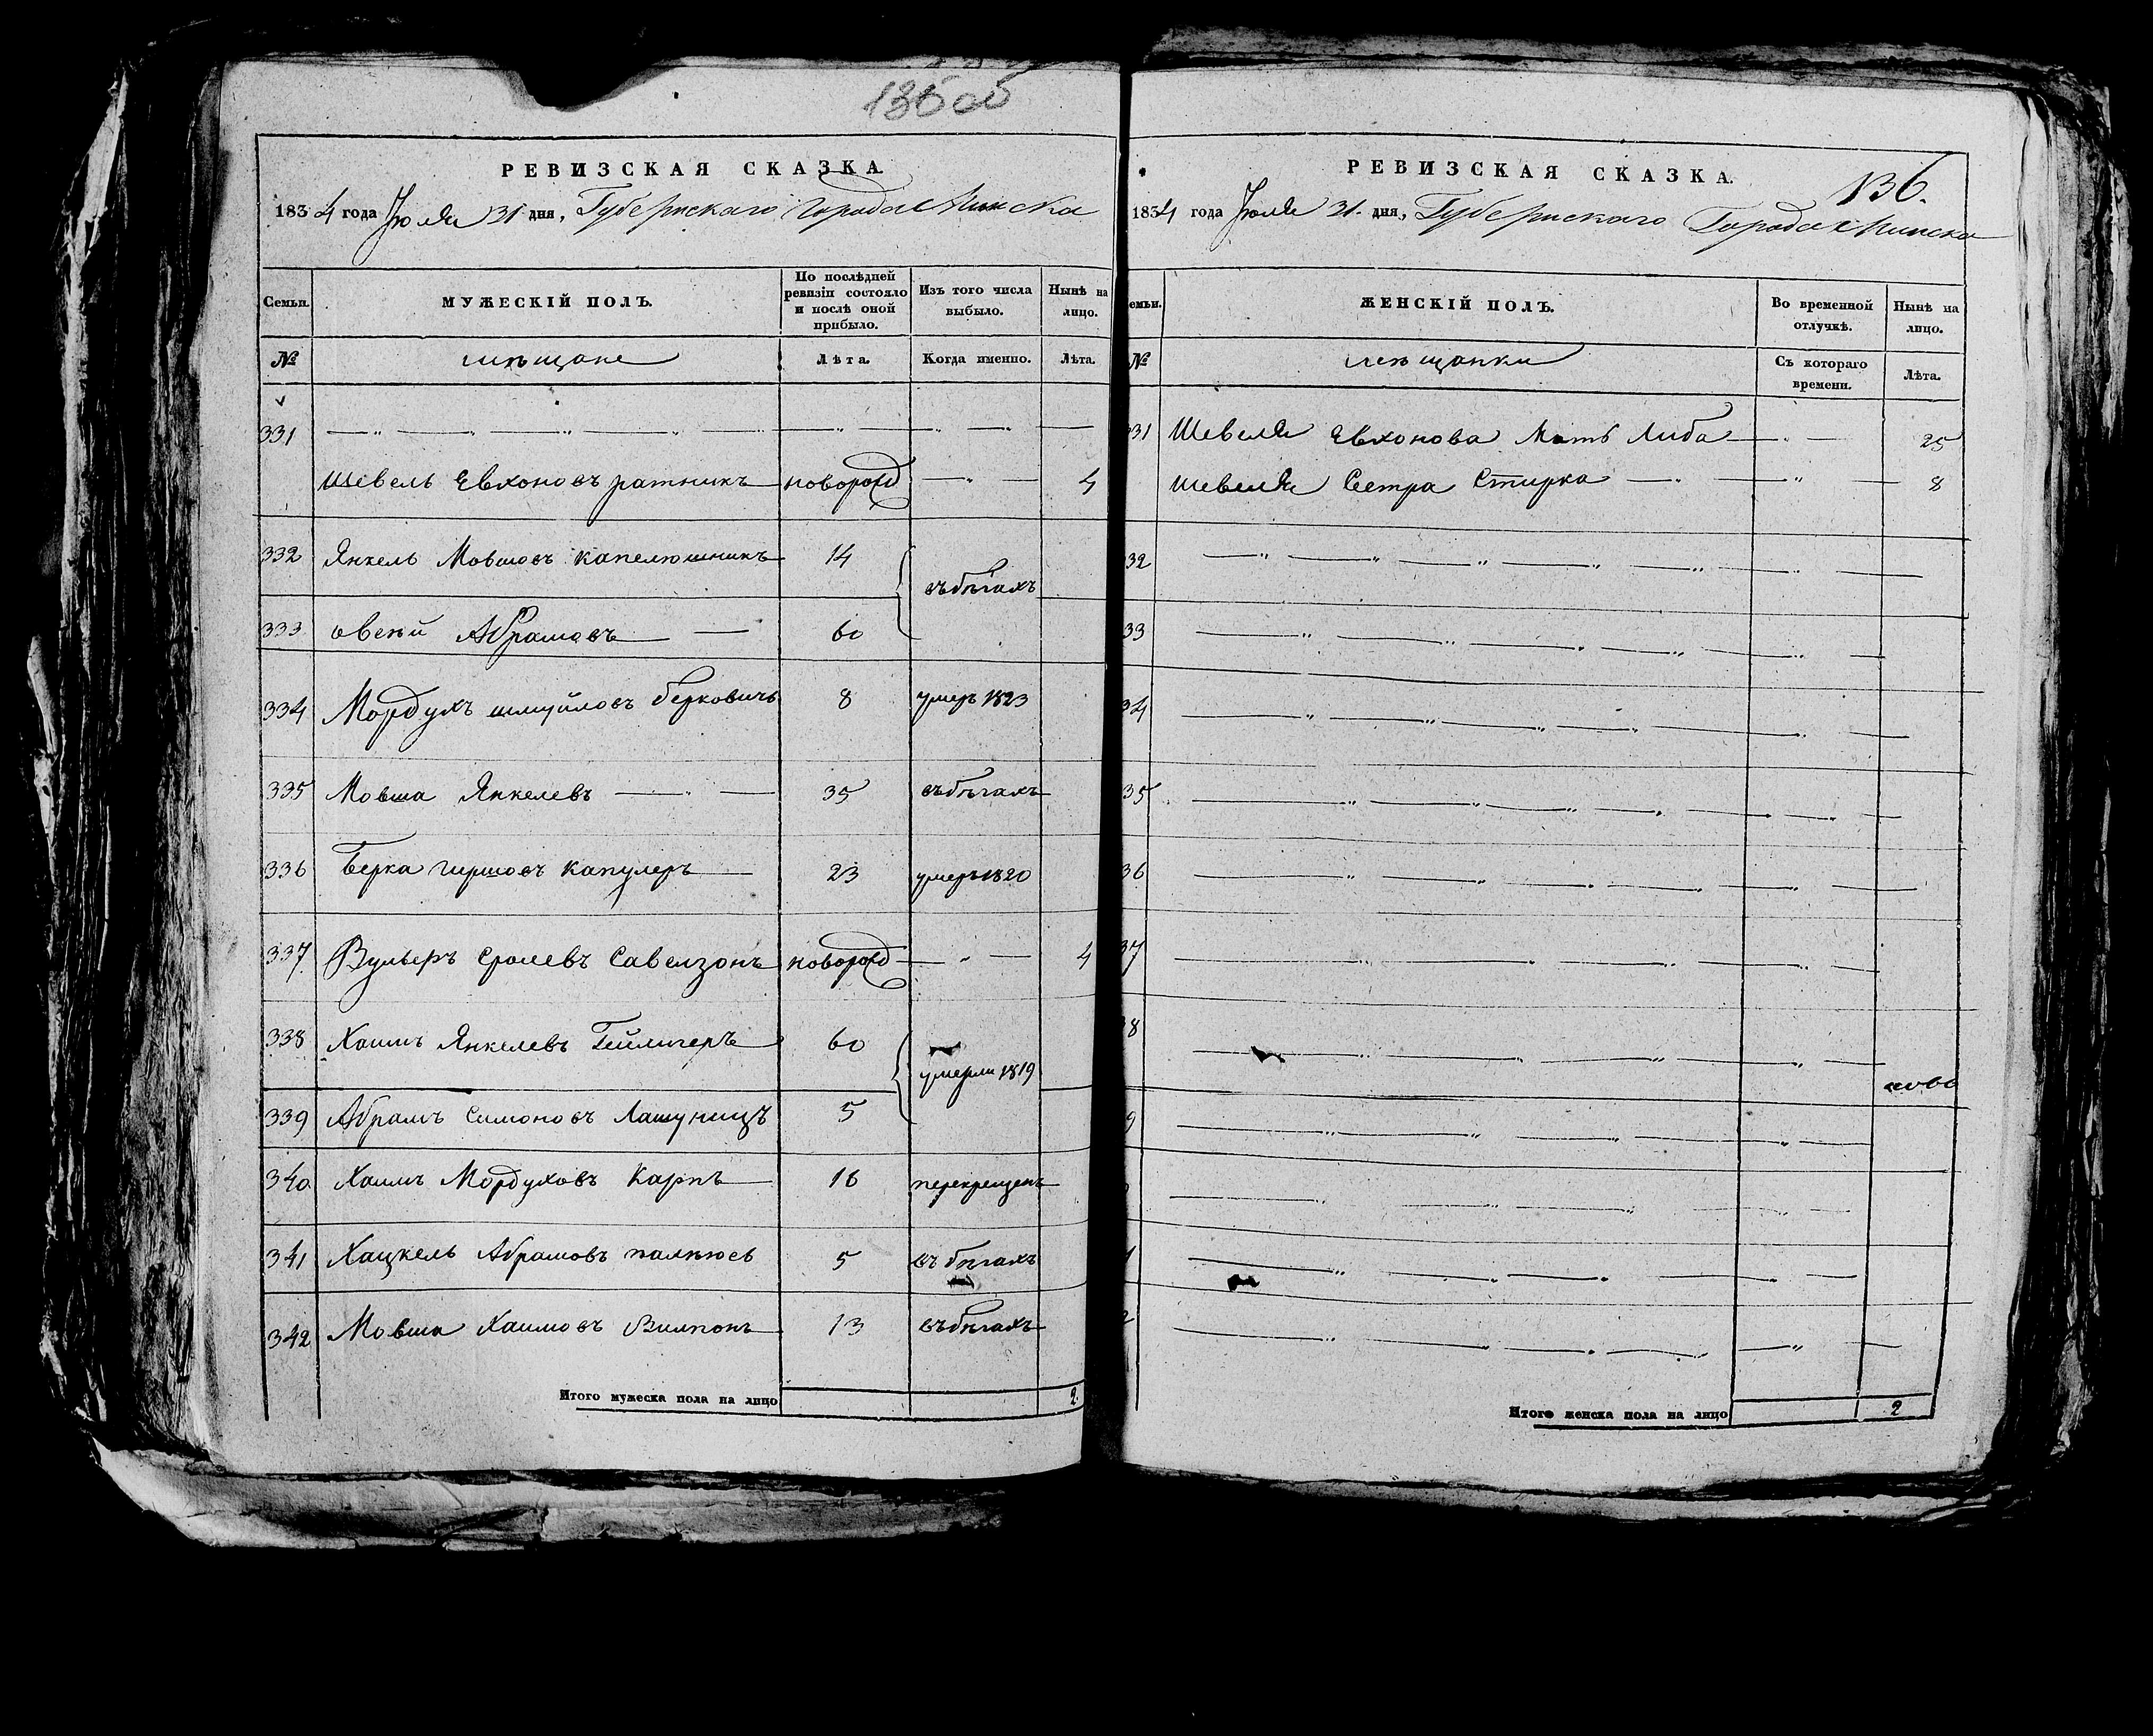 136 об
РЕВИЗСКАЯ СКАЗКА
1834 года Июля 31 дня, Губернскаго города Минска
Семьи. МУЖЕСКІЙ ПОЛЪ. По послѣдней ревизіи состояло и послѣ оной прибыло. Изъ того числа выбыло. Нынѣ на лицо.
№ мѣщане Лѣта. Когда именно. Лѣта.
331
Шевель Евхоновъ ратникъ новорожд 4
332 Янкель Мовшовъ Капелюшникъ 14 въ бѣгахъ
333 Абрамовъ 60
334 Мордухъ шмуйловъ берковичъ 8 умеръ 1823
335 Мовша Янкелевъ 35 въ бѣгахъ
336 Берка гиршовъ Капулеръ 23 умеръ 1820
337 Вульфъ Сролевъ Савелзонъ новорожд 4
338 Хаимъ Янкелевъ 60 умерли 1819
339 Абрамъ Симоновъ 5
340 Хаимъ Мордуховъ Карпъ 16 перекрещенъ
341 Хацкель Абрамовъ 5 въ бѣгахъ
342 Мовша Хаимовъ 13 въ бѣгахъ
Итого мужеска пола на лицо 2.
136.
РЕВИЗСКАЯ СКАЗКА.
1834 года Июля 31. дня, Губернскаго Города Минска
емьи. ЖЕНСКІЙ ПОЛЪ. Во временной отлучкѣ. Нынѣ на лицо.
№ мѣщанки Съ котораго времени. Лѣта.
31 Шевеля Евхонова Мать Либа 25
Шевеля Сестра Стирка 8
32
33
34
35
36
37
8
9
1
2
Итого женска пола на лицо 2